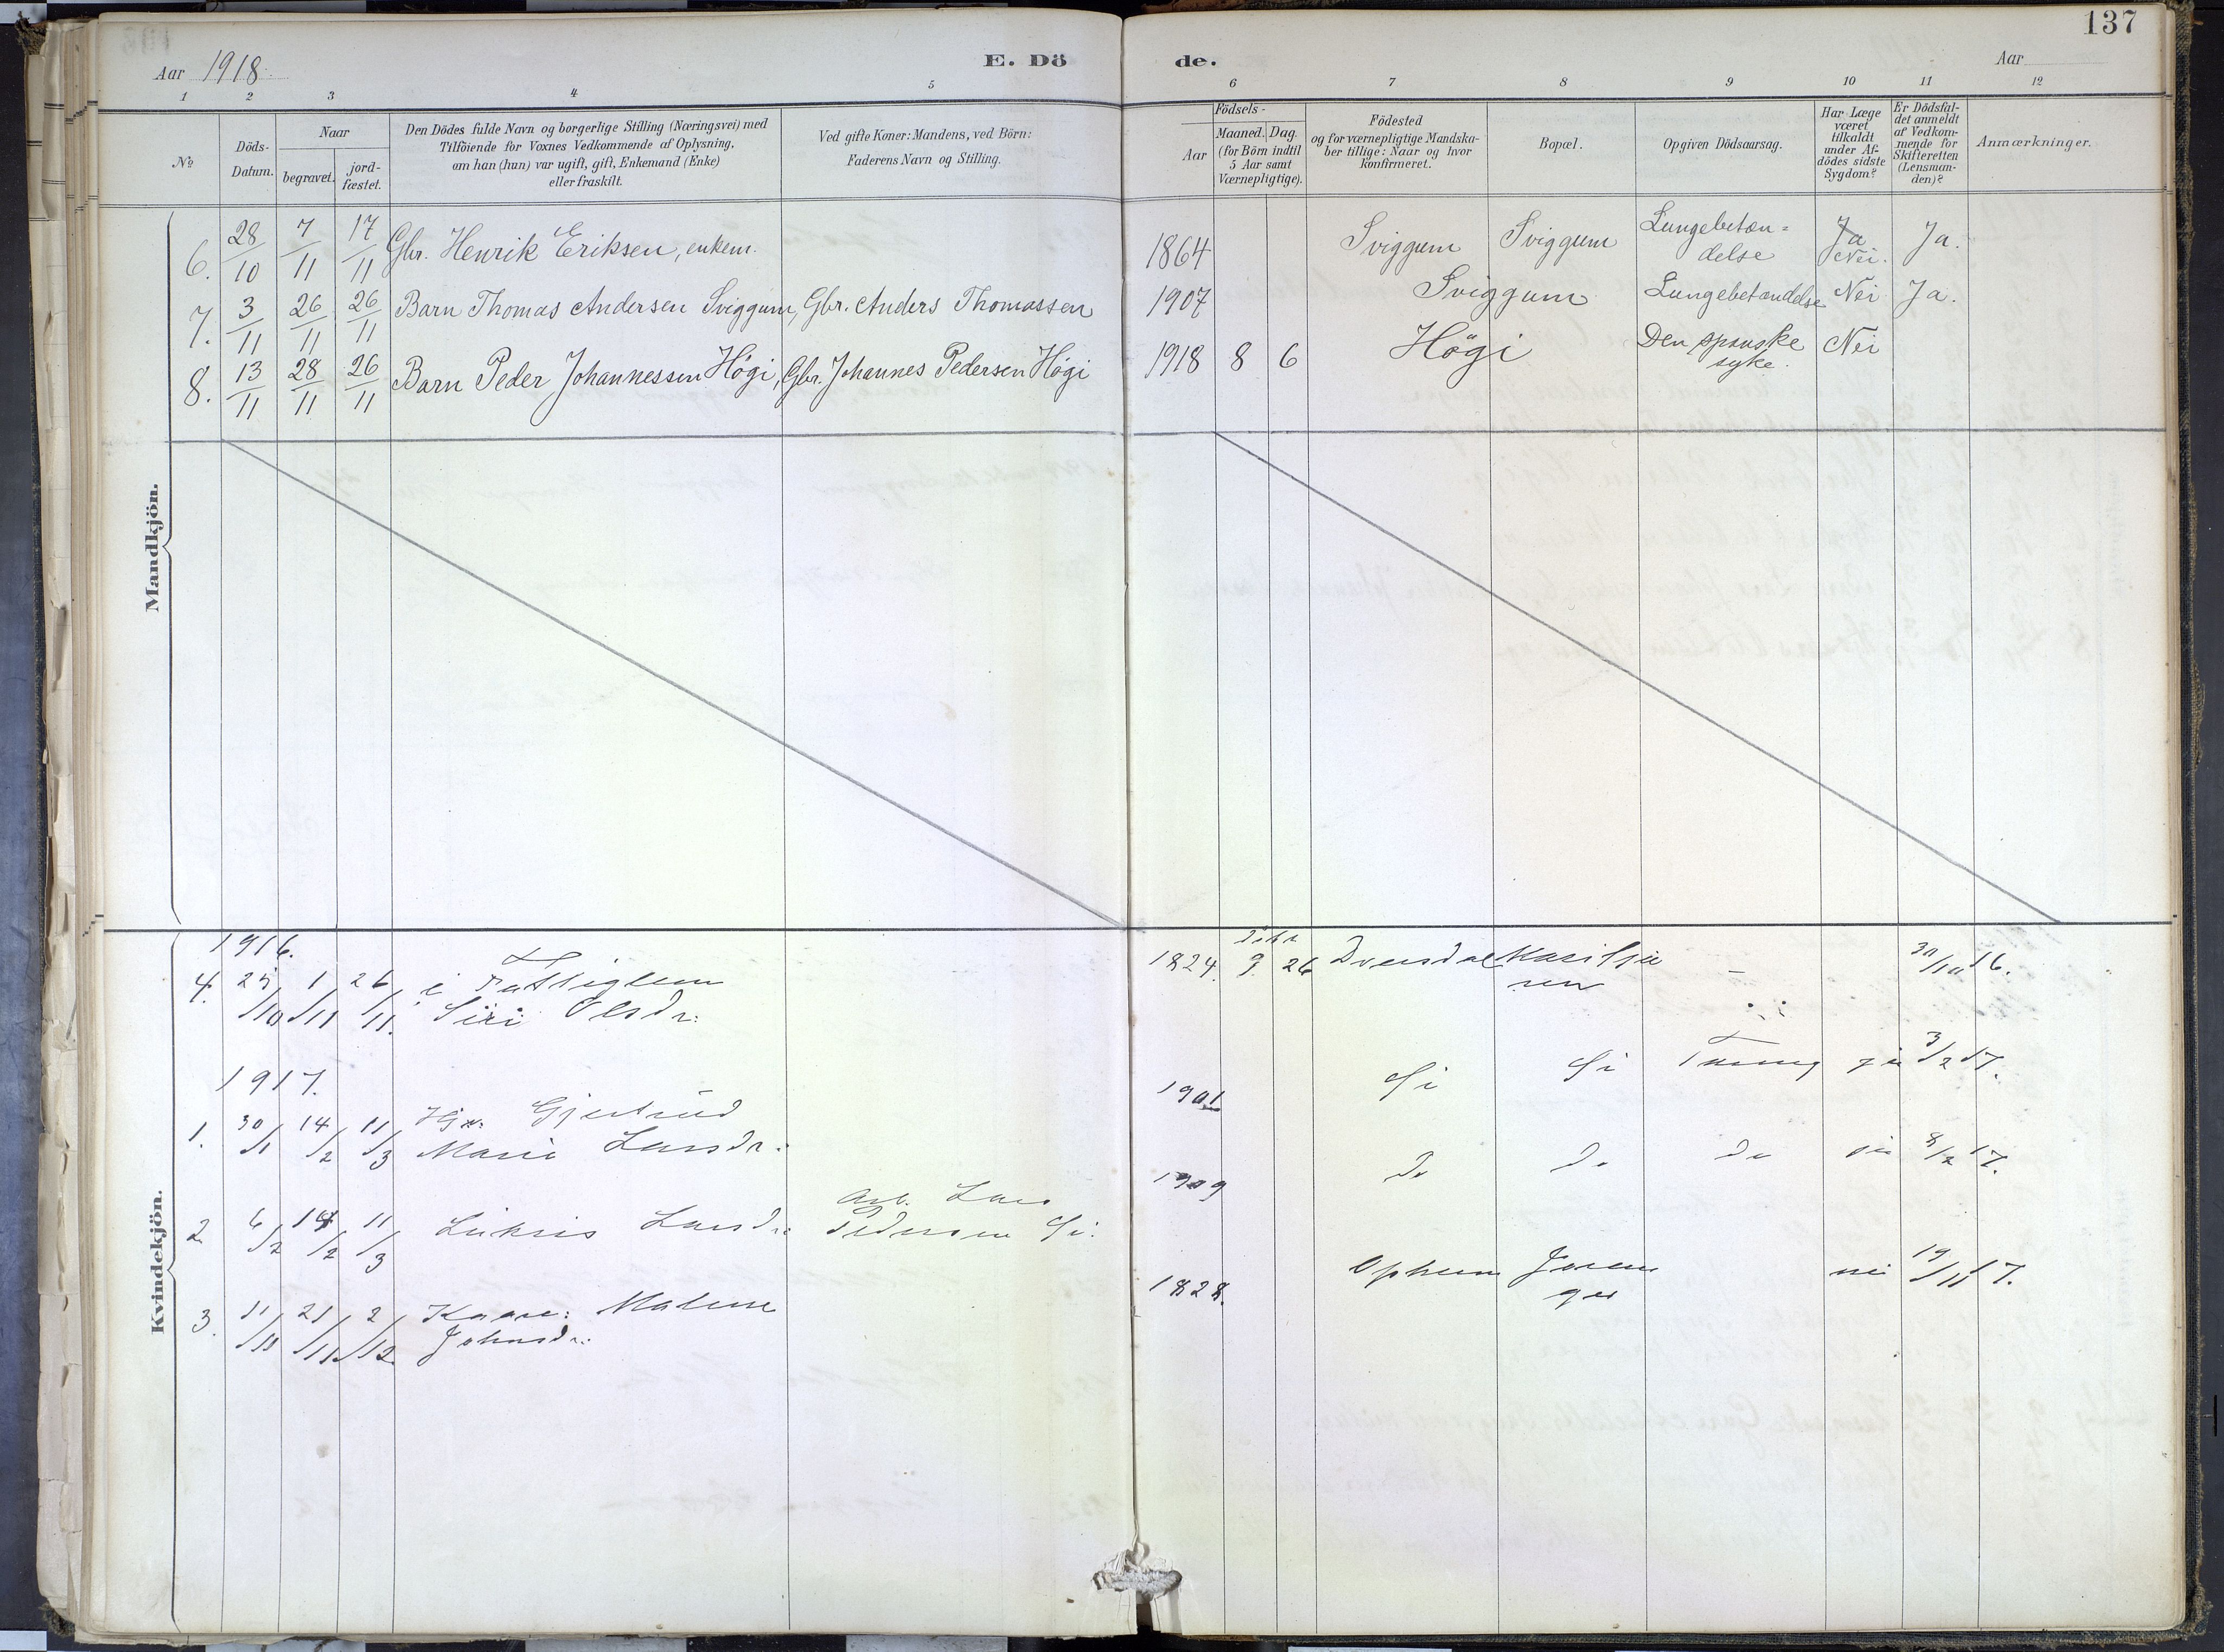 137
Aar 1918
E. Dö
de.
Aar
1 2 3 4 5 6 7 8 9 10 11 12
№
Döds-Datum.
Naar
begravet.
jord-fæstet.
Den Dödes fulde Navn og borgerlige Stilling (Næringsvei) med
Tilföiende for Voxnes Vedkommende af Oplysning,
om han (hun) var ugift, gift, Enkemand (Enke)
eller fraskilt.
Ved gifte Koner: Mandens, ved Börn:
Faderens Navn og Stilling.
Födsels-
Aar
Maaned. Dag.
(for Börn indtil
5 Aar samt
Værnepligtige).
Födested
og for værnepligtige Mandska-
ber tillige: Naar og hvor
konfirmeret.
Bopæl.
Opgiven Dödsaarsag.
Har Læge
været
tilkaldt
under Af-
dödes sidste
Sygdom?
Er Dödsfal-
det anmeldt
af Vedkom-
mende for
Skifteretten
(Lensman-
den)?
Anmærkninger.
Mandkjön.
6. 28/10 7/11 17/11 Gbr. Henrik Eriksen, enkem. 1864 Sviggum Sviggum Lungebetæn=
delse Ja Nei. Ja.
7. 3/11 26/11 26/11 Barn Thomas Andersen Sviggum, Gbr. Anders Thomassen 1907 Sviggum Lungebetændelse Nei Ja.
8. 13/11 28/11 26/11 Barn Peder Johannessen Högi, Gbr. Johannes Pedersen Högi 1918 8 6 Högi Den spanske
syke. Nei
Kvindekjön.
1916.
4. 25/10 1/11 26/11. Fattiglem
Siri Olsdr: 1824. 9. 26 30/10 16.
1917.
1. 30/1 14/2 11/3 Gjertrud
Marie Larsdr: 1901 3/2 17.
2 6/2 14/2 11/3 Larsdr: Arb. Lars
Pedersen 1909 do do do 8/2 17.
3. 11/11 21/11 2/12 Malene
Johnsdr: 1828. Opheim nei 19/11 17.